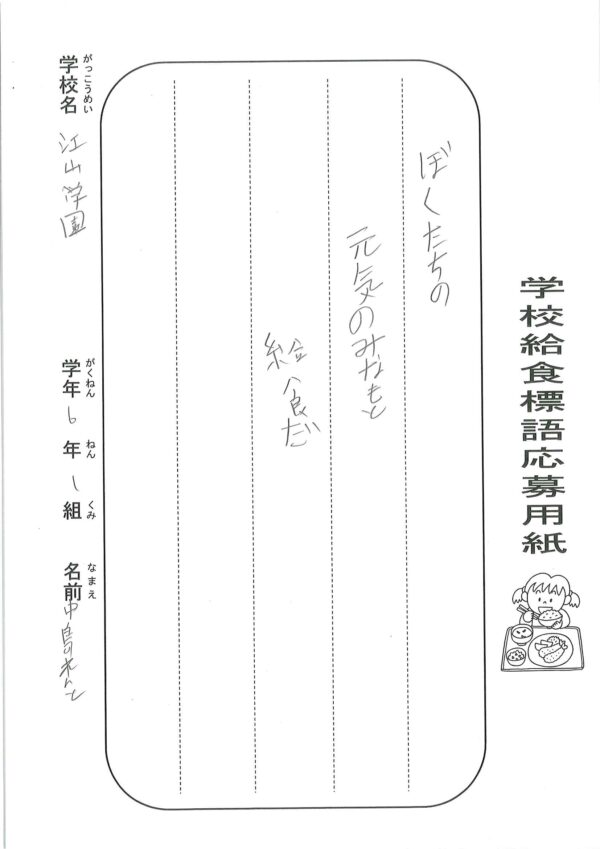 学校給食標語応募用紙
ぼくたちの
元気のみなもと
給食だ
学校名 がっこうめい 江山学園
学年 がくねん 6 年 ねん 1 組 くみ
名前 なまえ 中島れんと